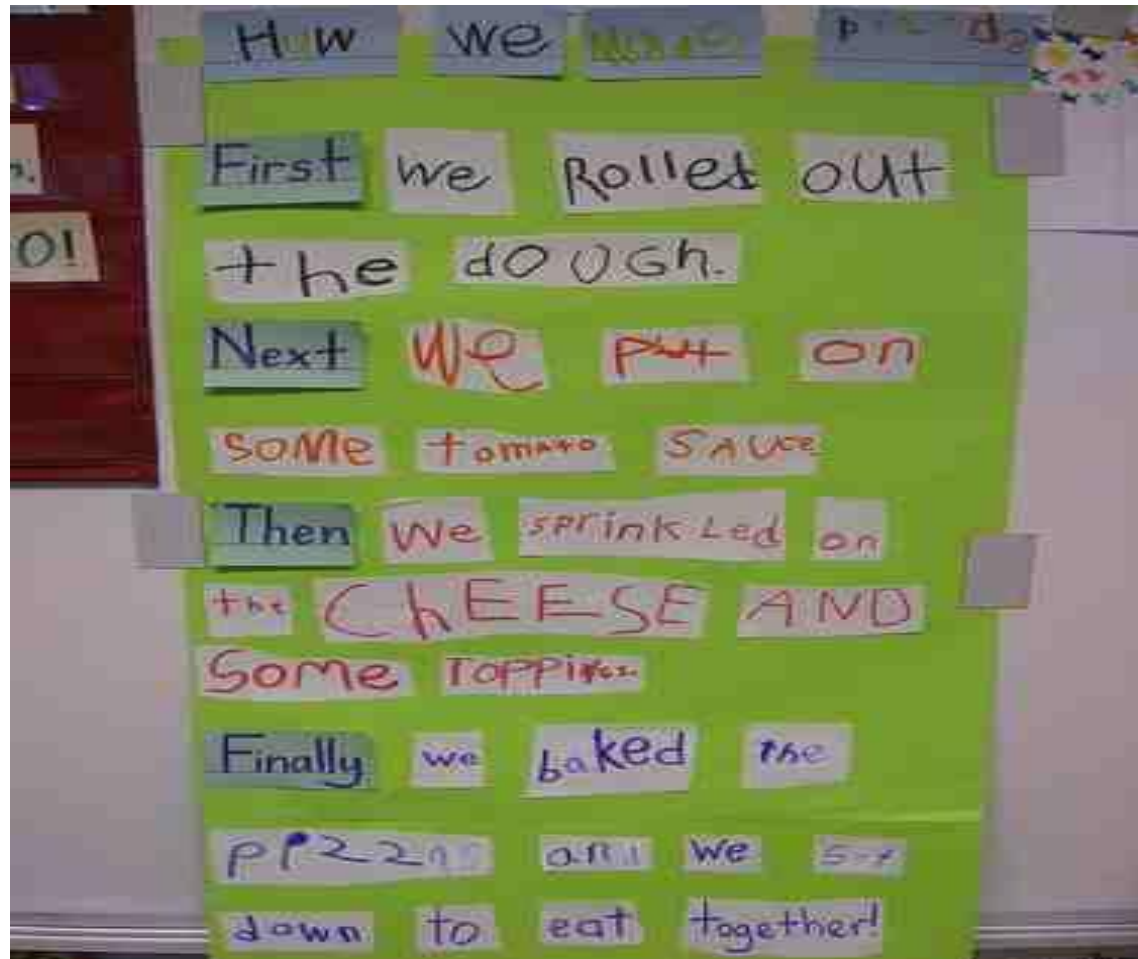 How we
First we Rolled out
the dOUGh.
Next We put on
SOMe tomato SAUce
Then We sprinkLed on
the ChEESE AND
Some TOPPings.
Finally we baked the
and we sat
down to eat together!
O!